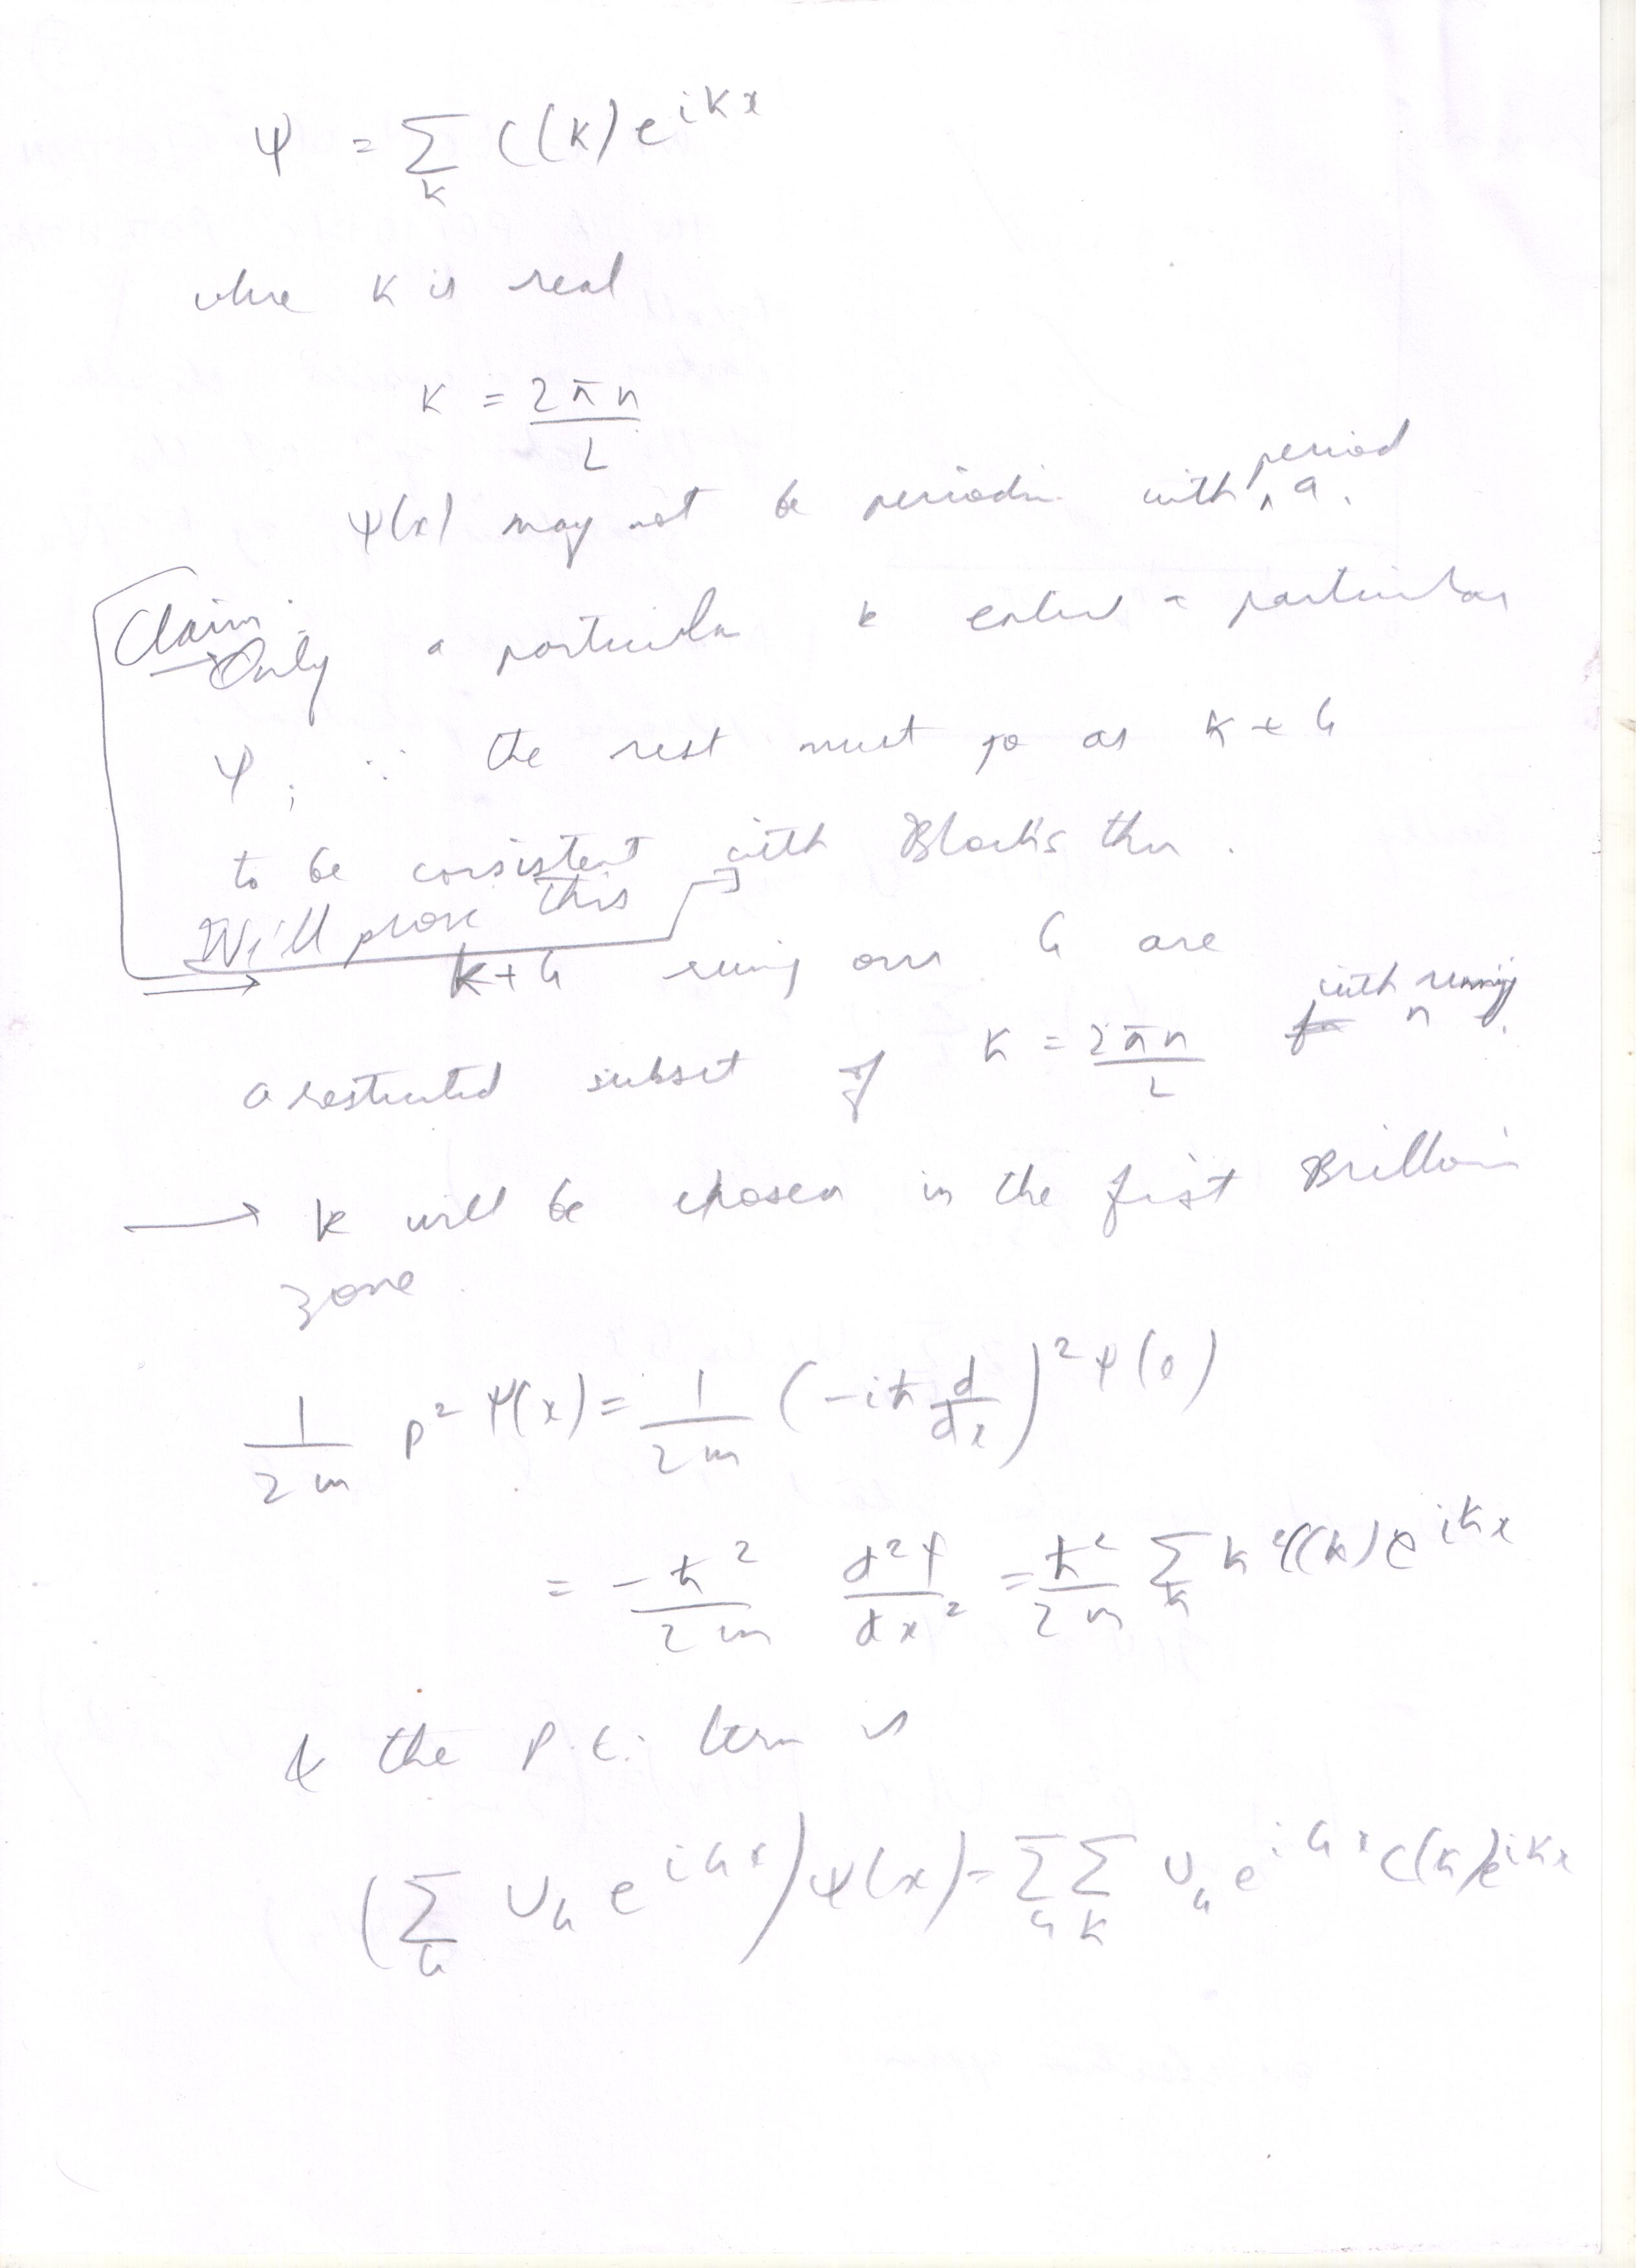 ψ = Σ_k C(k) e^{ikx}
where k is real
k = 2πn/L
ψ(x) may not be periodic with period a.
Claim:
→ Only a particular k enters a particular
ψ, ∵ the rest must go as k + G
to be consistent with Bloch's thm.
We'll prove this
→ k + G running over G are
a restricted subset of k = 2πn/L with running n.
→ k will be chosen in the first Brillouin
zone.
1/2m p² ψ(x) = 1/2m (-iħ d/dx)² ψ(x)
= -ħ²/2m d²ψ/dx² = ħ²/2m Σ_k k² C(k) e^{ikx}
& the P.E. term is
(Σ_G U_G e^{iGx}) ψ(x) = Σ_G Σ_k U_G e^{iGx} C(k) e^{ikx}